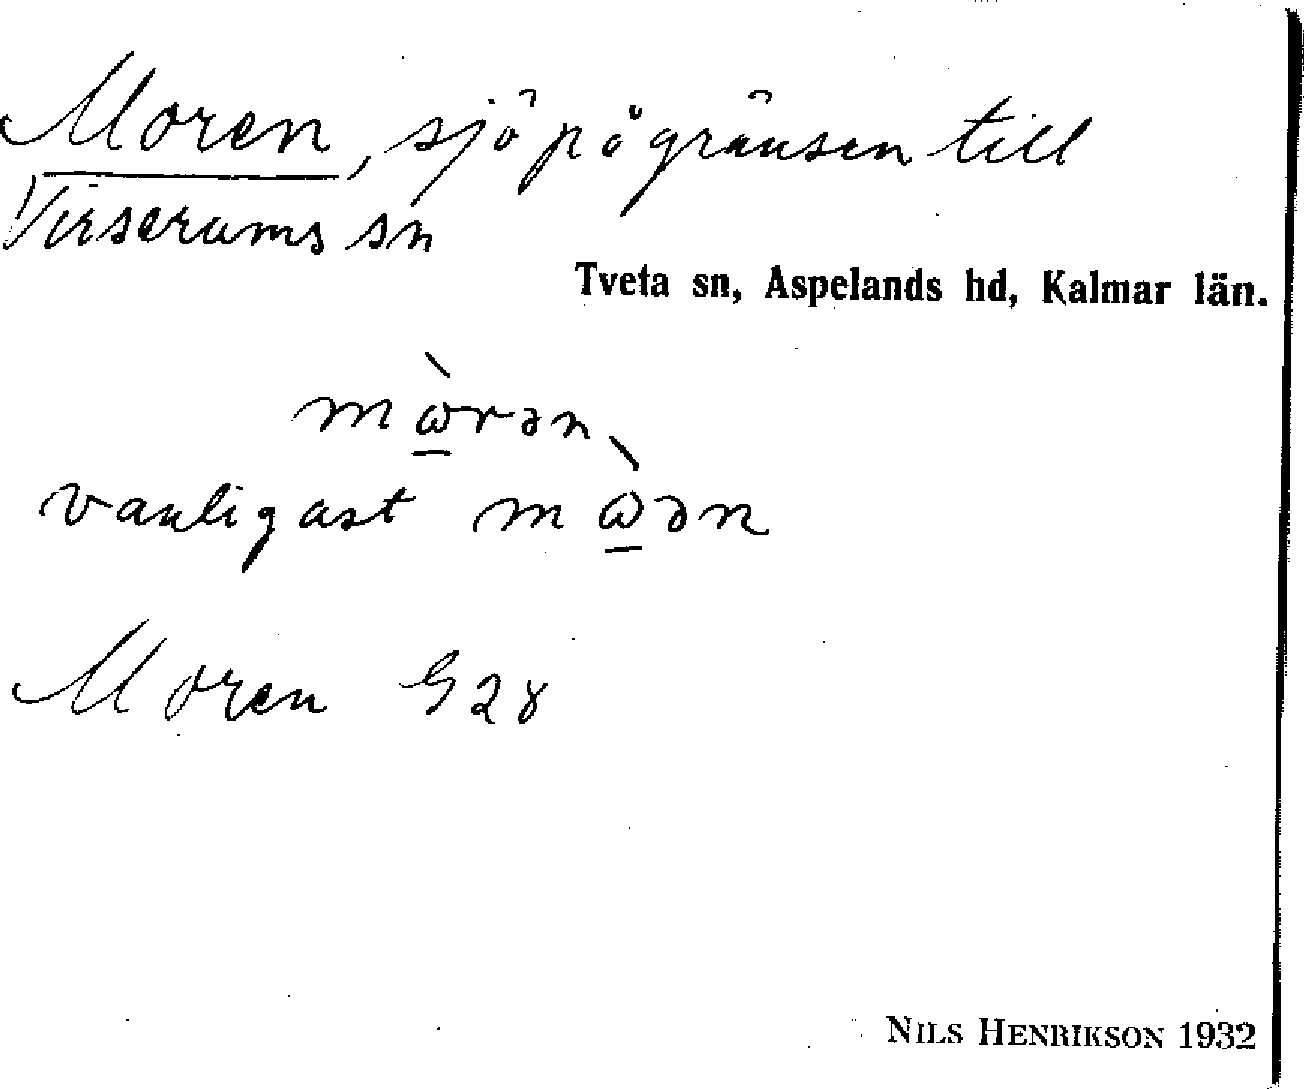 Moren, sjö på gränsen till
Virserums sn
Tveta sn, Aspelands hd, Kalmar län.
mὼ̲rən
vanligast mὼ̲ən
Moren G28
NILS HENRIKSON 1932